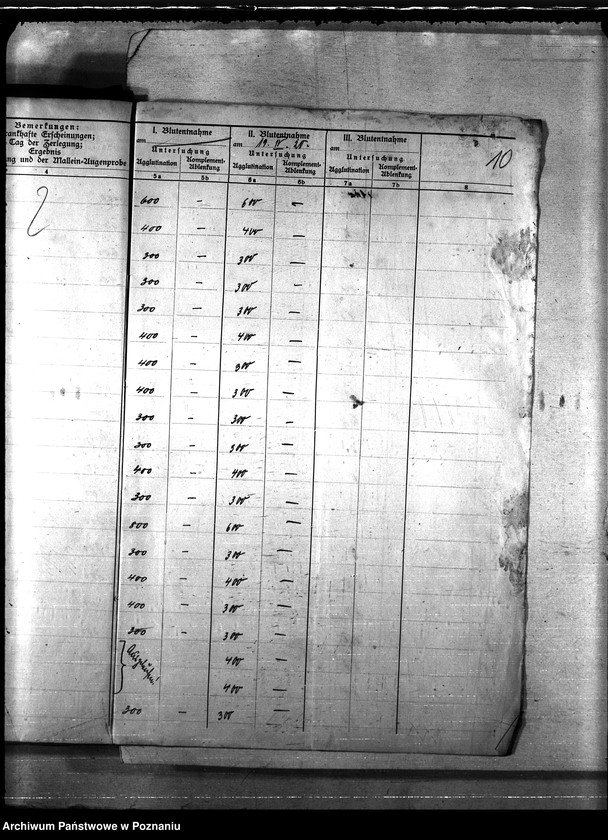 Bemerkungen:
krankhafte Erscheinungen;
Tag der Zerlegung;
Ergebnis
ng und der Mallein-Augenprobe
4
2
I. Blutentnahme
am
Untersuchung
Agglutination
Komplement-
Ablenkung
5a 5b
II. Blutentnahme
am 19. IV.
Untersuchung
Agglutination
Komplement-
Ablenkung
6a 6b
III. Blutentnahme
am
Untersuchung
Agglutination
Komplement-
Ablenkung
7a 7b
8
10
600 — 600 —
400 — 400 —
300 — 300 —
300 — 300 —
300 — 300 —
400 — 400 —
400 — 300 —
400 — 300 —
300 — 300 —
300 — 300 —
400 — 400 —
300 — 300 —
800 — 600 —
300 — 300 —
400 — 400 —
400 — 300 —
300 — 300 —
400 —
400 —
300 — 300 —
Archiwum Państwowe w Poznaniu